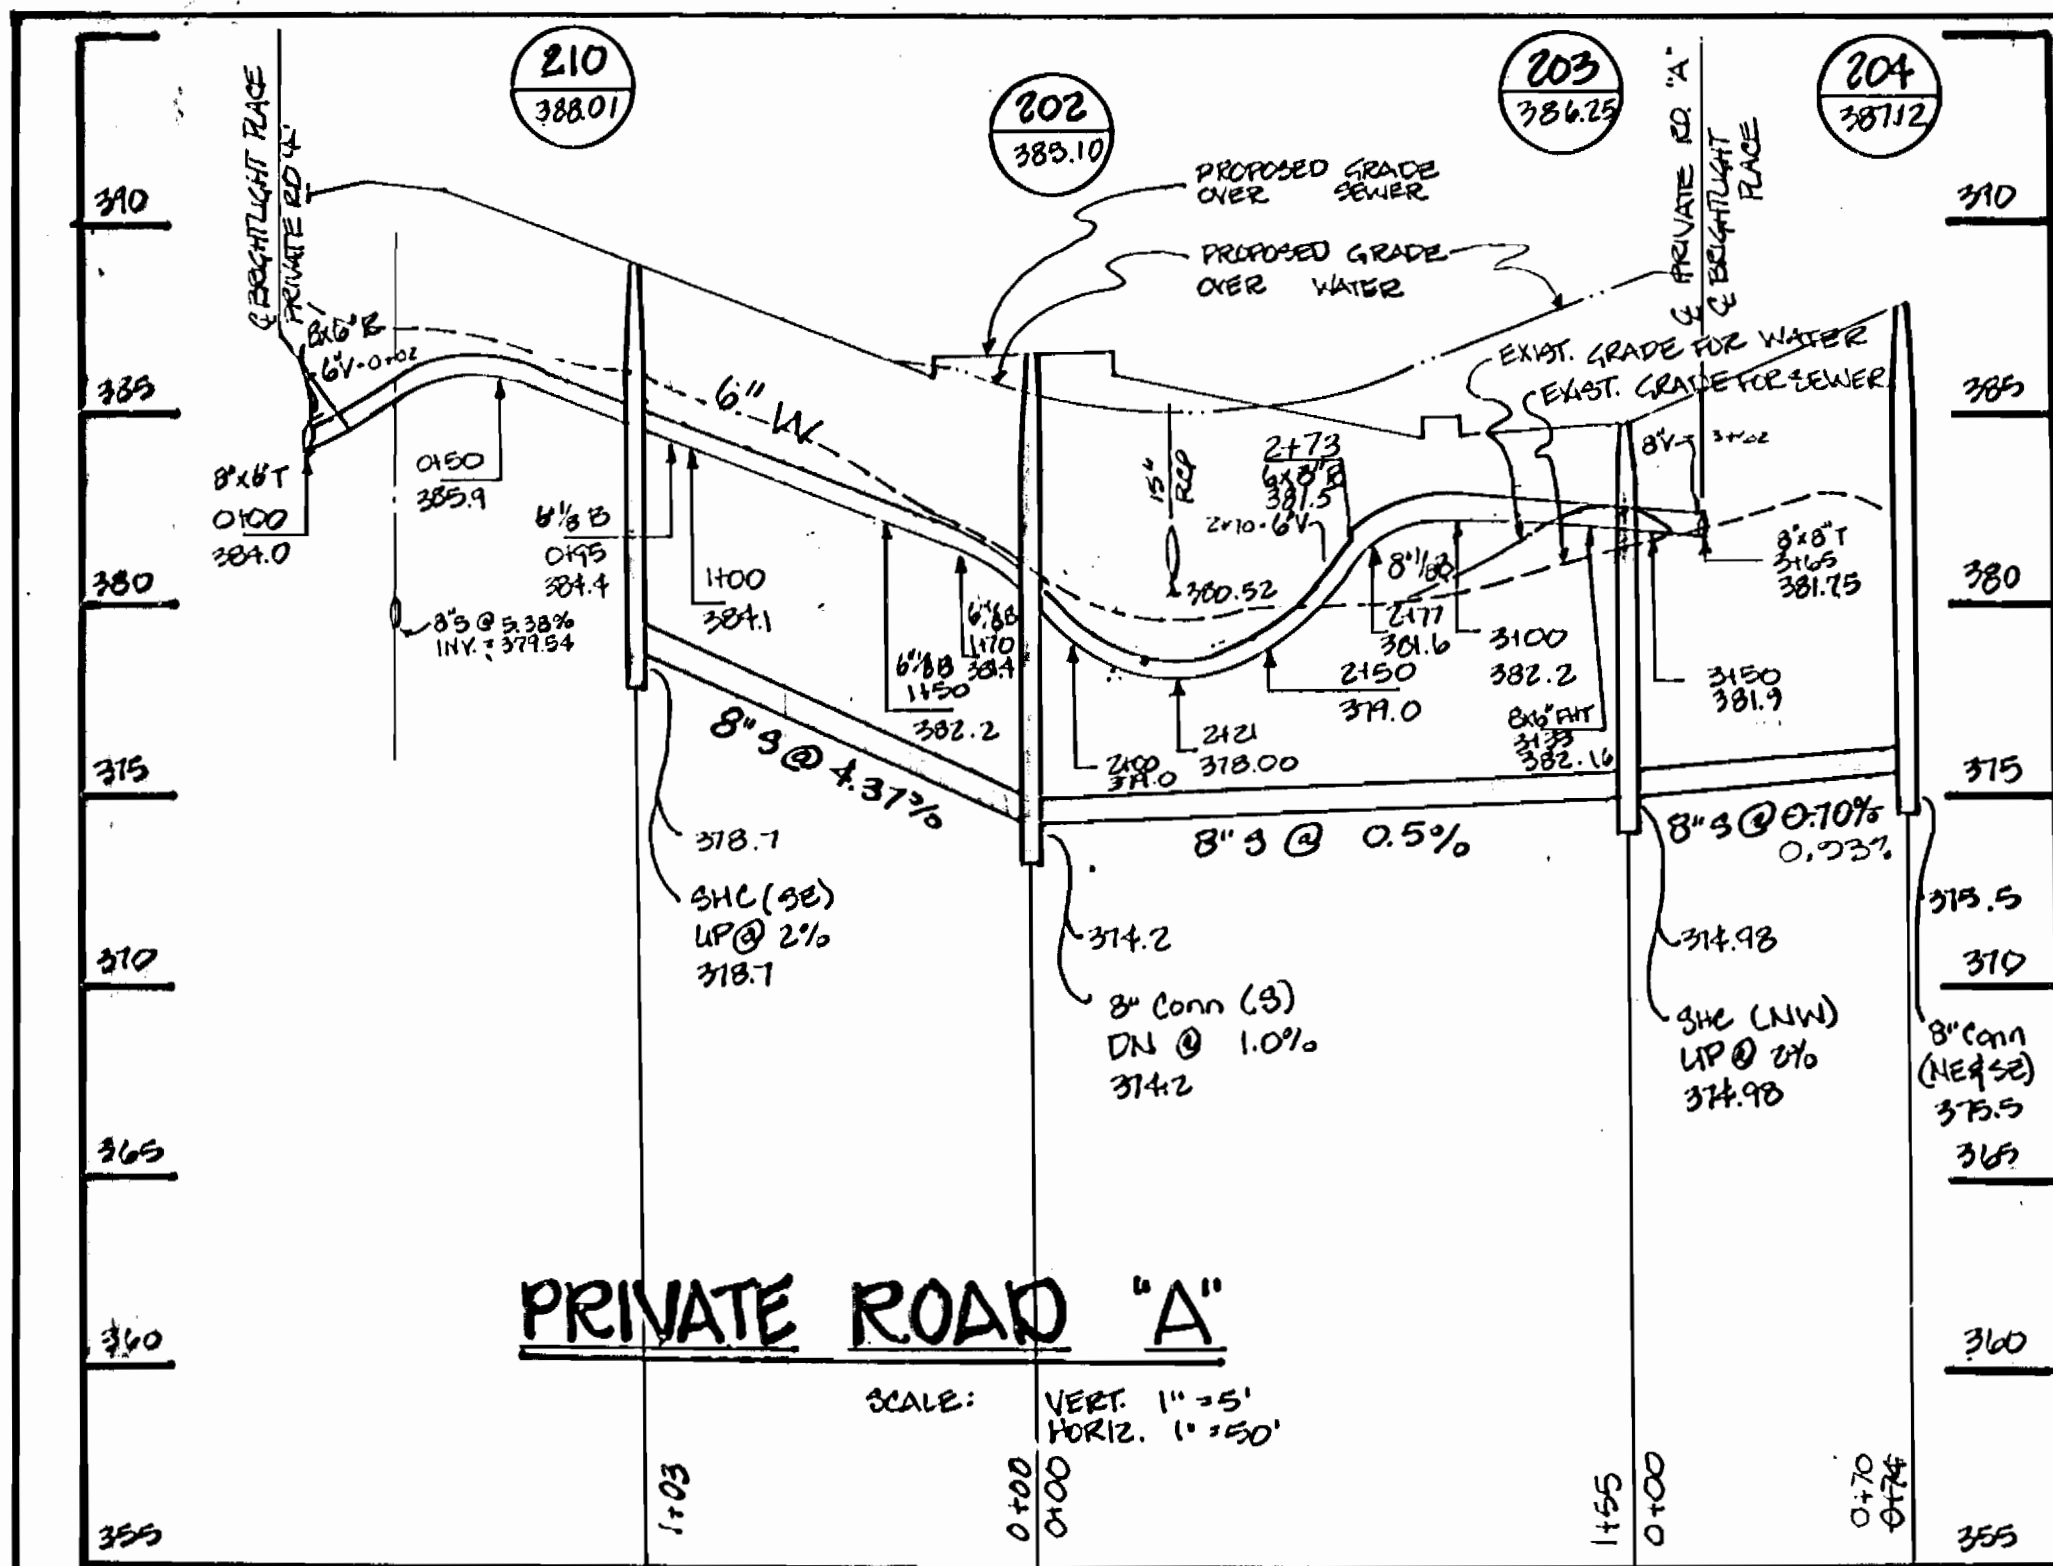 210
388.01
202
383.10
203
386.25
204
387.12
℄ BRIGHTLIGHT PLACE
PRIVATE RD "A"
℄ PRIVATE RD. "A"
℄ BRIGHTLIGHT
PLACE
PROPOSED GRADE
OVER SEWER
PROPOSED GRADE
OVER WATER
EXIST. GRADE FOR WATER
EXIST. GRADE FOR SEWER
390
385
380
375
370
365
360
355
390
385
380
375
370
365
360
355
8x6" B
6"V-0+02
8"x6" T
0+00
384.0
0+50
385.9
8"S @ 5.38%
INV. = 379.54
6" 1/8 B
0+95
384.4
1+00
384.1
6" W
6" 1/8 B
1+50
382.2
6" 1/8 B
1+70
381.4
2+00
379.0
2+21
378.00
15"
RCP
380.52
2+50
379.0
2+73
6x8" B
381.5
2+70-6"V
8" 1/8 B
2+77
381.6
3+00
382.2
8x6" FHT
3+33
382.16
3+50
381.9
8"V-
8"x8" T
3+65
381.75
8" S @ 4.37%
8" S @ 0.5%
8" S @ 0.70%
0.93%
378.7
SHC (SE)
UP @ 2%
378.7
374.2
8" Conn (S)
DN @ 1.0%
374.2
374.98
SHC (NW)
UP @ 2%
374.98
375.5
8" Conn
(NE & SE)
375.5
PRIVATE ROAD "A"
SCALE: VERT. 1" = 5'
HORIZ. 1" = 50'
1+03
0+00
0+00
1+55
0+00
0+70
0+74